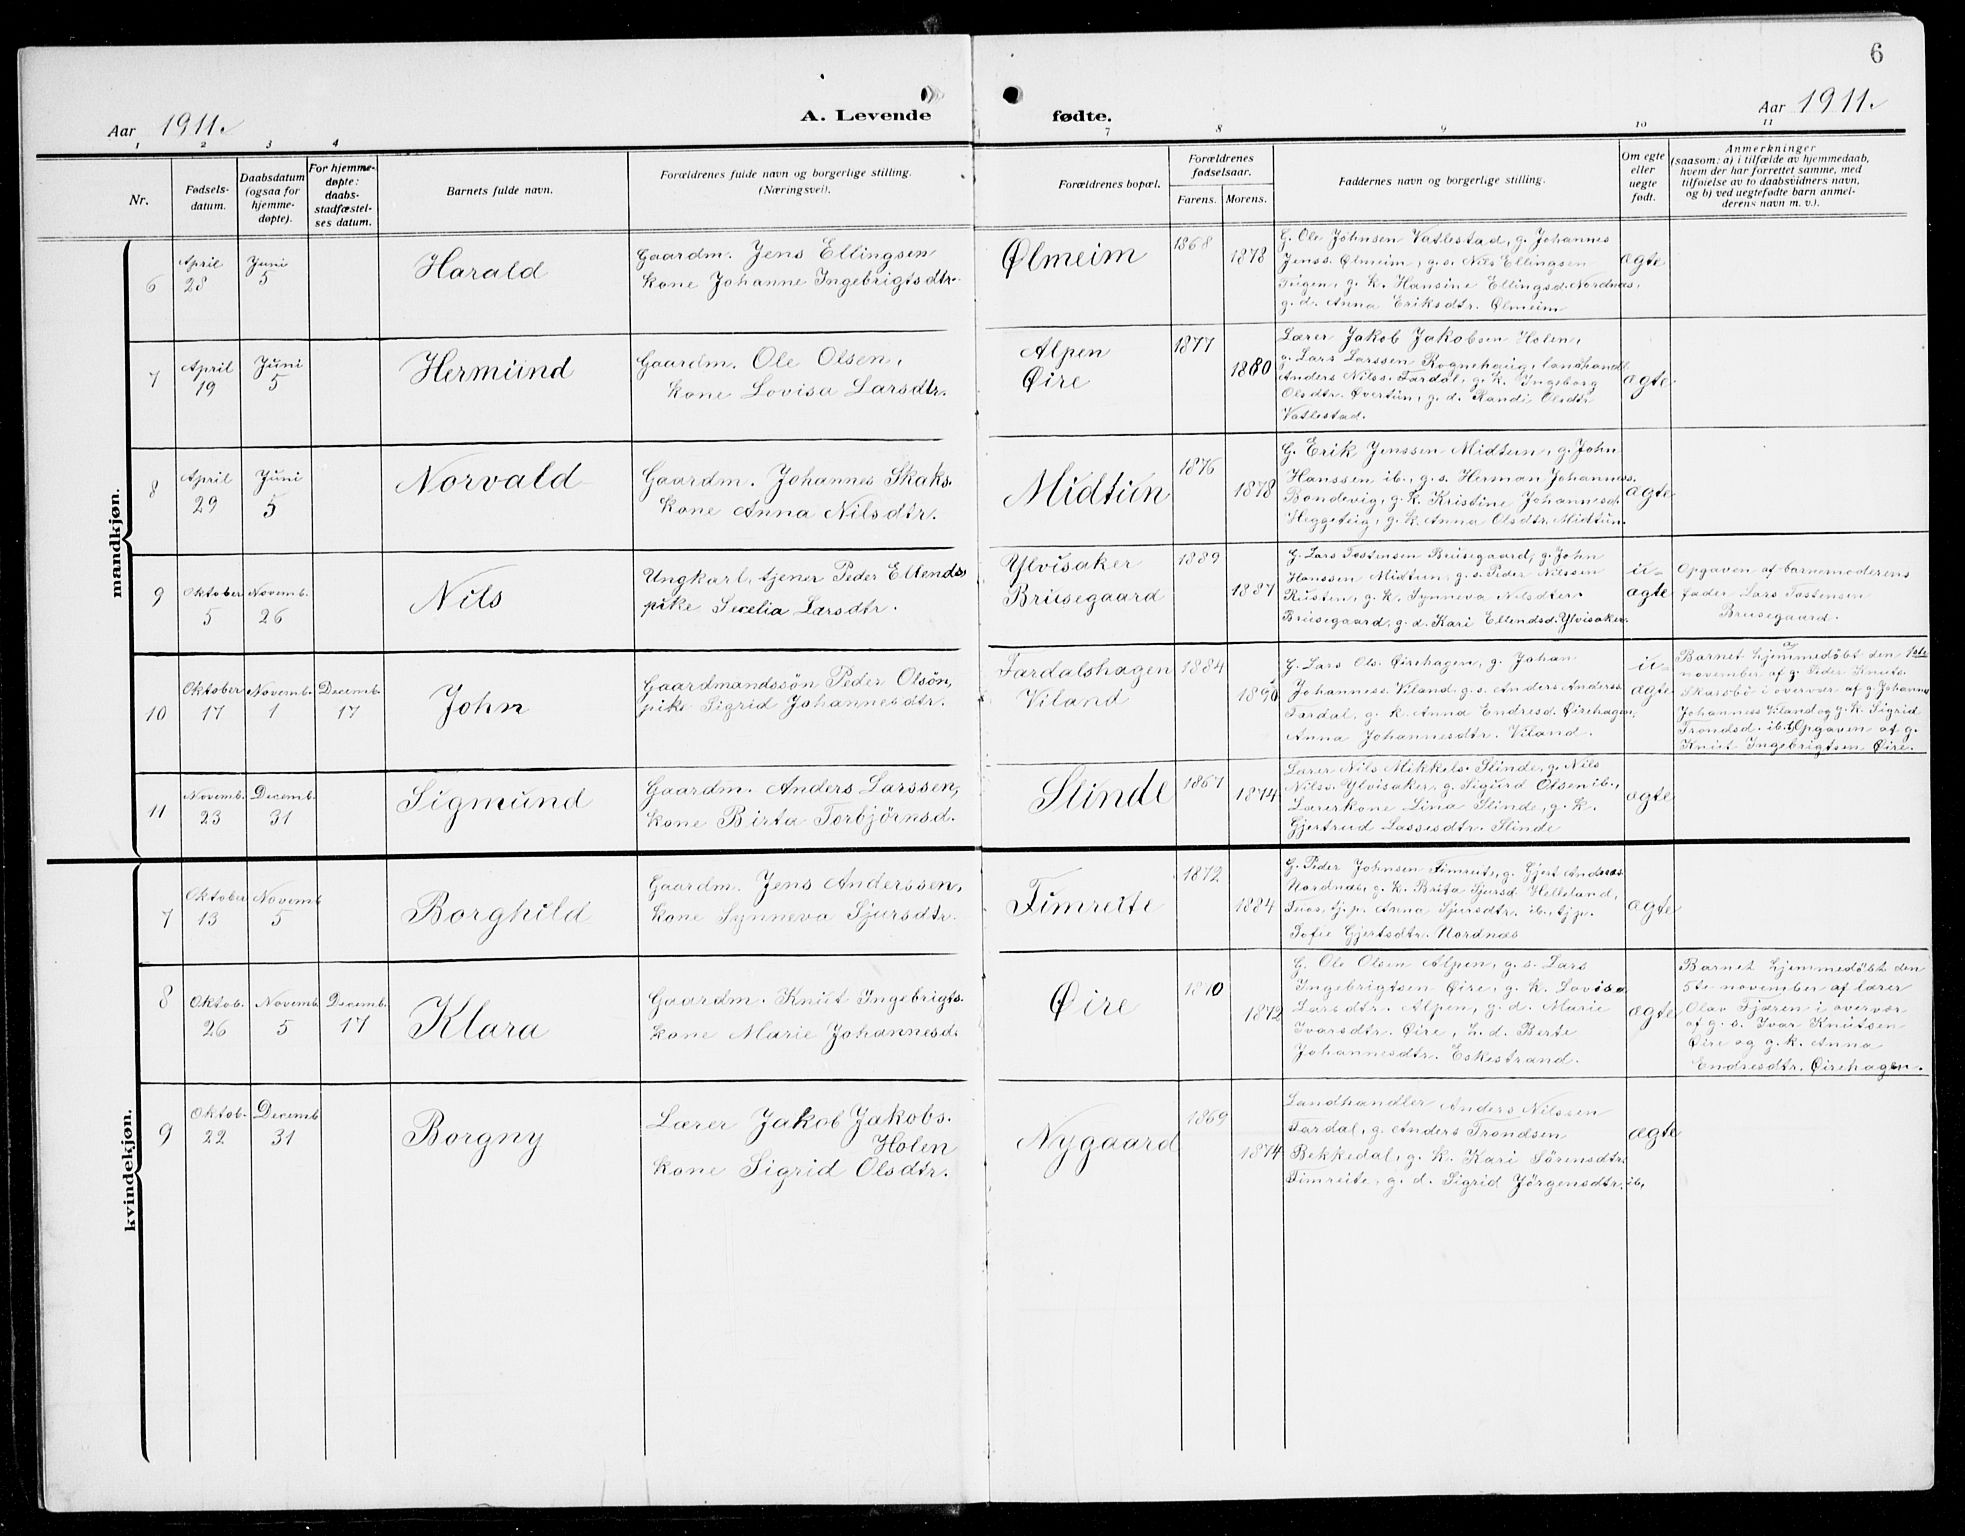 6
Aar 1911.
A. Levende fødte.
Aar 1911.
1 2 3 4 7 8 9 10 11
Nr.
Fødsels-
datum.
Daabsdatum
(ogsaa for
hjemme-
døpte).
For hjemme-
døpte:
daabs-
stadfæstel-
ses datum.
Barnets fulde navn.
Forældrenes fulde navn og borgerlige stilling.
(Næringsvei).
Forældrenes bopæl.
Forældrenes
fødselsaar.
Farens. Morens.
Faddernes navn og borgerlige stilling.
Om egte
eller
uegte
født.
Anmerkninger
(saasom: a) i tilfælde av hjemmedaab,
hvem der har forrettet samme, med
tilføielse av to daabsvidners navn,
og b) ved uegtefødte barn anmel-
derens navn m. v.).
mandkjøn.
6
April
28
Juni
5
Harald
Gaardm. Jens Ellingsen
kone Johanne Ingebrigtsdtr.
Ølmeim
1868
1878
G. Ole Johnsen Vatlestad, g. Johannes
Jenss. Ølmeim, g.s. Nils Ellingsen
Tugen, g. k. Hansine Ellingsd. Nordnæs,
g. d. Anna Eriksdtr. Ølmeim
ægte
7
April
19
Juni
5
Hermund
Gaardm. Ole Olsen,
kone Lovisa Larsdtr.
Alpen
Øire
1877
1880
Lærer Jakob Jakobsen Holen,
g. Lars Larssen Rognehaug, landhandl.
Anders Nilss. Fardal, g. k. Ingeborg
Olsdtr. Øvertun, g. d. Randi Olsdtr
Vatlestad.
ægte
8
April
29
Juni
5
Norvald
Gaardm. Johannes Skaks.
kone Anna Nilsdtr.
Midtun
1876
1878
G. Erik Jenssen Midtun, g. John
Hanssen ib., g.s. Herman Johanness.
Bondevig, g. k. Kristine Johannesd.
Heggeteig, g. k. Anna Olsdtr. Midtun.
ægte
9
Oktober
5
Novemb.
26
Nils
Ungkarl, tjener Peder Ellends,
pike Secelia Larsdtr.
Ylvisaker
Brusegaard
1889
1887
G. Lars Tostensen Brusegaard, g. John
Hanssen Midtun, g.s. Peder Nilssen
Rusten, g. k. Synneva Nilsdter.
Brusegaard, g. d. Kari Ellendsd. Ylvisaker.
u-
ægte
Opgaven af barnemoderens
fader Lars Tostensen
Brusegaard.
10
Oktober
17
Novemb.
1
Decemb.
17
John
Gaardmandssøn Peder Olsøn,
pike Sigrid Johannesdtr.
Fardalshagen
Viland
1884
1890
G. Lars Ols. Øirehagen, g. Johan
Johanness. Viland, g.s. Anders Anderss.
Fardal, g. k. Anna Endresd. Øirehagen,
Anna Johannesdtr. Viland.
u-
ægte
Barnet hjemmedøbt den 1ste
november af g. Peder Knuts.
Skarsbø i overvær af g. Johannes
Johanness Viland og g. k. Sigrid
Trondsd. ib. b) Opgaven af g.
Knut Ingebrigtsen Øire.
11
Novemb.
23
Decemb.
31
Sigmund
Gaardm. Anders Larssen,
kone Birta Torbjørnsd.
Slinde
1867
1874
Lærer Nils Mikkels. Slinde, g. Nils
Nilss. Ylvisaker, g. Sigurd Olsen ib.,
Lærerkone Lina Slinde, g. k.
Gjertrud Lassesdtr. Slinde
ægte
kvindekjøn.
7
Oktober
13
Novemb
5
Borghild
Gaardm. Jens Anderssen,
kone Synneva Sjursdtr.
Fimreite
1872
1884
G. Peder Johnsen Fimreite, g. Gjert Anderss.
Nordnæs, g. k. Brita Sjursd Helleland,
tjp. Anna Sjursdtr. ib., tjp.
Sofie Gjertsdtr. Nordnæs
ægte
8
Oktob.
26
Novemb.
5
Decemb.
17
Klara
Gaardm. Knut Ingebrigts.
kone Marie Johannesd.
Øire
1870
1872
G. Ole Olsen Alpen, g. s. Lars
Ingebrigtsen Øire, g. k. Lovisa
Larsdtr. Alpen, g. d. Marie
Ivarsdtr. Øire, h. d. Berte
Johannesdtr. Eskestrand.
ægte
Barnet hjemmedøbt den
5te november af lærer
Olav Fjæren i overvær
af g. s. Ivar Knutsen
Øire og g. k. Anna
Endresdtr. Øirehagen.
9
Oktob.
22
Decemb
31
Borgny
Lærer Jakob Jakobs.
Holen
kone Sigrid Olsdtr.
Nygaard
1869
1874
Landhandler Anders Nilssen
Fardal, g. Anders Trondsen
Bekkedal, g. k. Kari Sørensdtr.
Fimreite, g. d. Sigrid Jørgensdtr. ib.
ægte